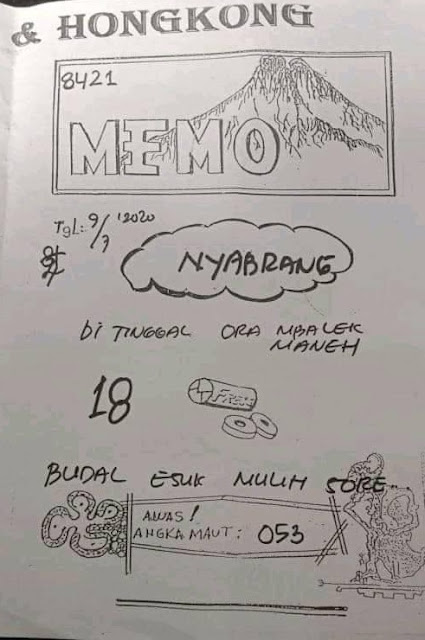 & HONGKONG
8421
MEMO
TgL: 9/7 '2020
NYABRANG
Di TINGGAL ORA MBALEK
MANEH
18
BUDAL ESUK MULIH SORE
AWAS!
ANGKA MAUT: 053